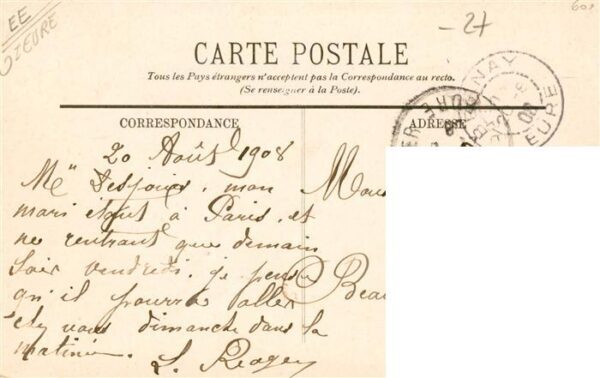 EE
27 EURE
-27
CARTE POSTALE
Tous les Pays étrangers n'acceptent pas la Correspondance au recto.
(Se renseigner à la Poste).
CORRESPONDANCE
ADRESSE
20 Août 1908
Mr Desjoins, mon
mari étant à Paris, et
ne rentrant que demain
soir vendredi, je pense
qu'il pourra aller
chez vous dimanche dans la
matinée.
Mous
Beau
NAY
EURE
08